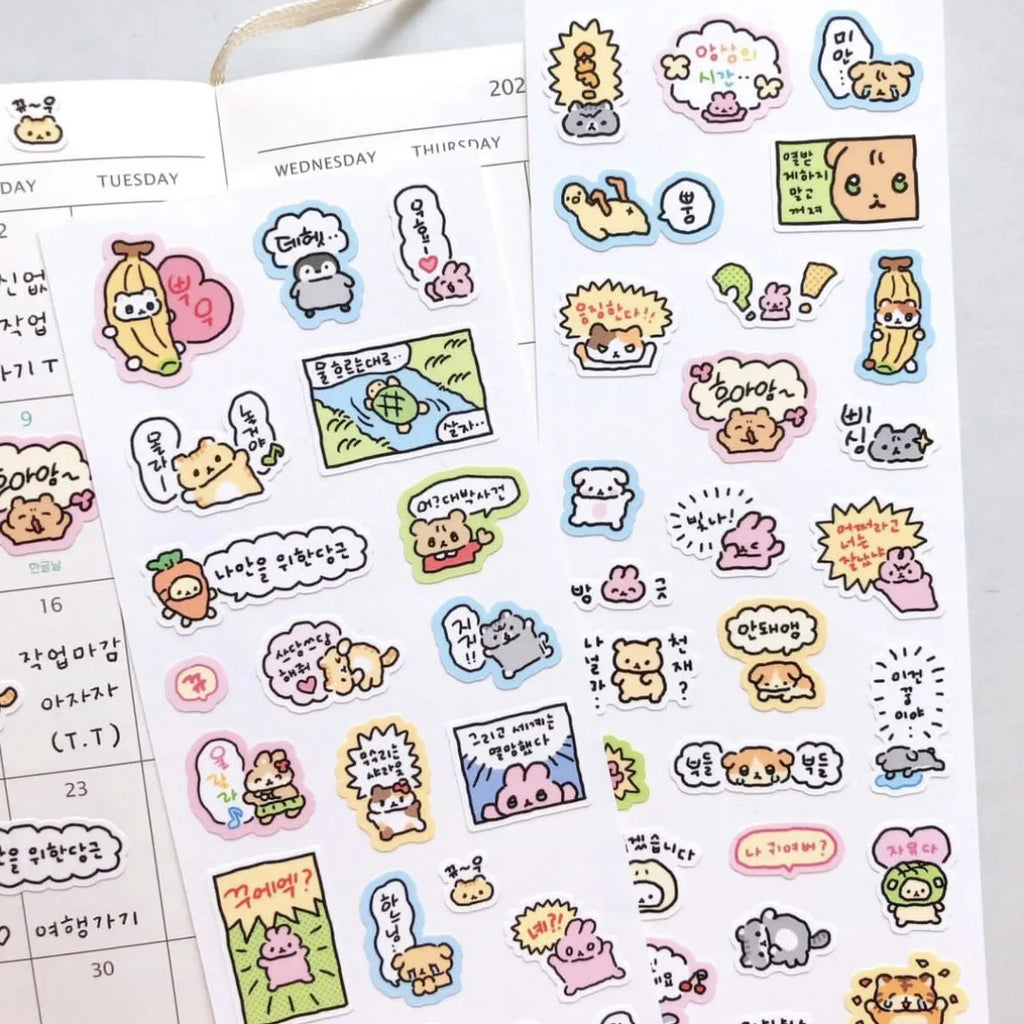 뀨~우
202
DAY
TUESDAY
WEDNESDAY
THURSDAY
2
작업
가기 T
9
흐아암~
한글날
16
작업마감
아자자
(T.T)
23
을 위한당근
여행가기
30
쀼
우
데헷..
물 흐르는대로..
살자..
몰라-
놀거야
어?대박사건
나만을 위한당근
쓰담쓰담
해줘
지지!!
뀨
울
랄
라
그리고 세계는
멸망했다
꾸에엑?
뀨~우
하느님..
네?!
앙상의
시간..
미안...
뿡
열받
게하지
말고
꺼져
응징한다!!
흐아암~
삐짐
빛나!
어쩌라고
너는
잘났냐
방
긋
나
널라..
천재?
안돼앵
이건
꿈
이야
부들
부들
겠습니다
나 귀여버?
자유다